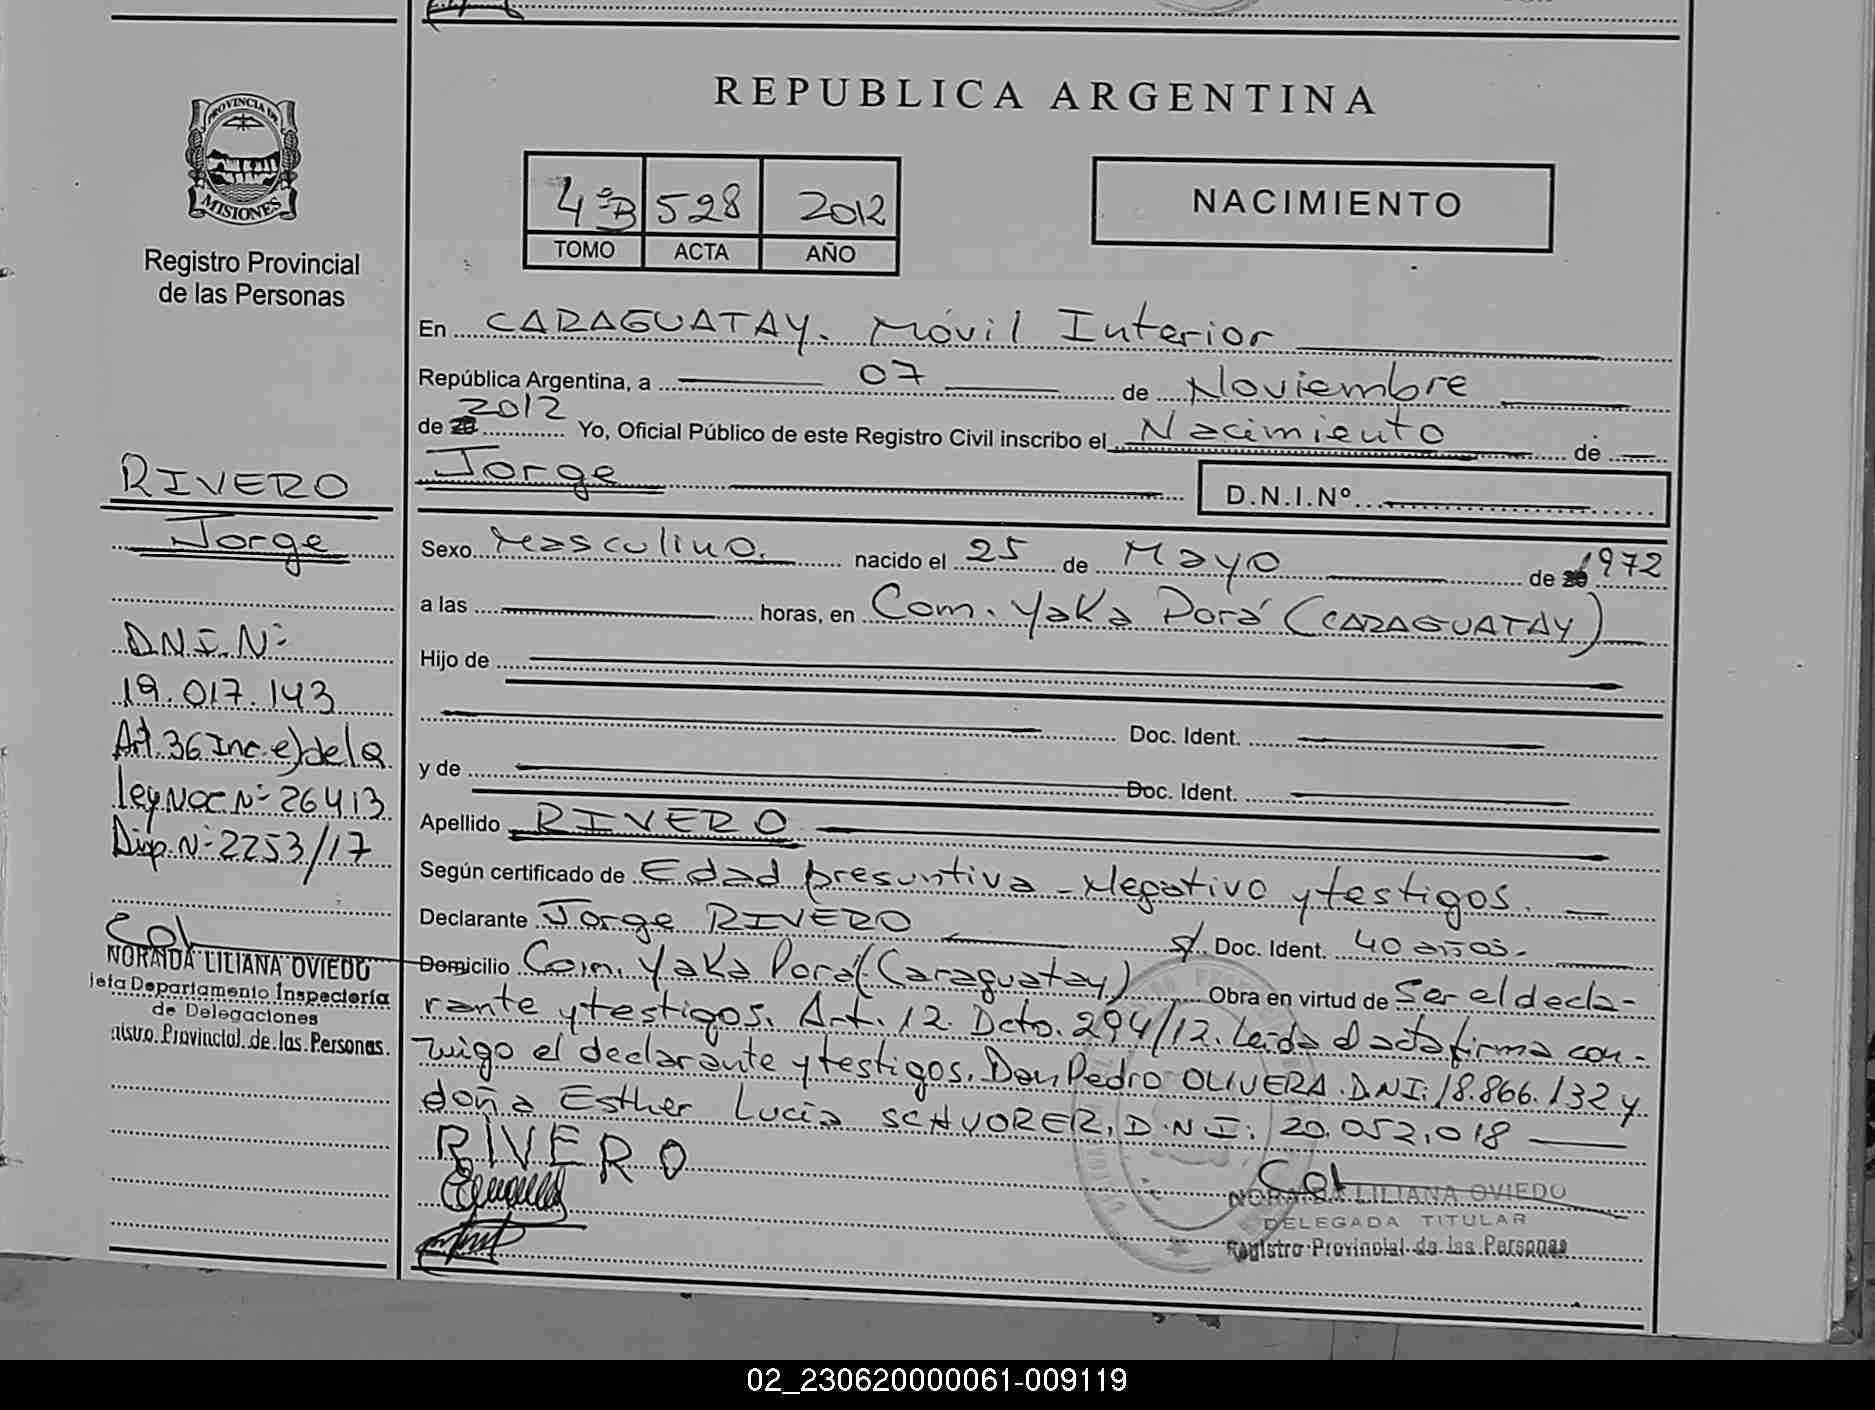 REPUBLICA ARGENTINA
PROVINCIA DE
MISIONES
Registro Provincial
de las Personas
4ºB 528 2012
TOMO ACTA AÑO
NACIMIENTO
En CARAGUATAY. Móvil Interior
República Argentina, a 07 de Noviembre
de 2012 Yo, Oficial Público de este Registro Civil inscribo el Nacimiento de
Jorge D.N.I.Nº
Sexo Masculino. nacido el 25 de Mayo de 1972
a las horas, en Com. Yaka Porá (CARAGUATAY)
Hijo de
Doc. Ident.
y de Doc. Ident.
Apellido RIVERO
Según certificado de Edad presuntiva - Negativo y testigos.
Declarante Jorge RIVERO s/ Doc. Ident. 40 años.
Domicilio Com. Yaka Porá (Caraguatay) Obra en virtud de Ser el decla-
rante y testigos. Art. 12. Dcto. 294/12. Leída el acta firma con-
migo el declarante y testigos. Don Pedro OLIVERA. D.N.I: 18.866.132 y
doña Esther Lucia SCHVORER. D.N.I: 20.052.018
RIVERO
NORAIDA LILIANA OVIEDO
DELEGADA TITULAR
Registro Provincial de las Personas
RIVERO
Jorge
D.N.I. Nº
19.017.143
Art. 36 Inc. e) de la
Ley Nac Nº 26413
Disp. Nº 2253/17
NORAIDA LILIANA OVIEDO
Jefa Departamento Inspectoria
de Delegaciones
gistro Provincial de las Personas
02_230620000061-009119